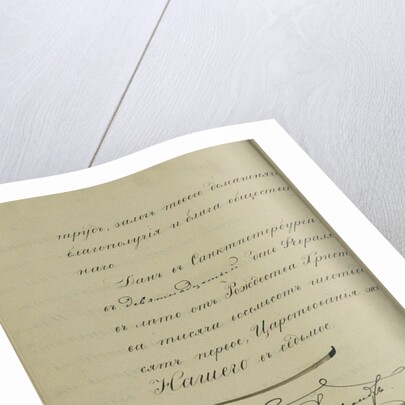 трудъ, залогъ твоего домашняго
благополучія и блага обществен
наго.
Данъ въ Санктпетербургѣ
въ девятнадцатый день Феврал
въ лѣто отъ Рождества Христо
ва тысяча восемьсотъ шестьде
сятъ первое, Царствованія же
Нашего въ седьмое.